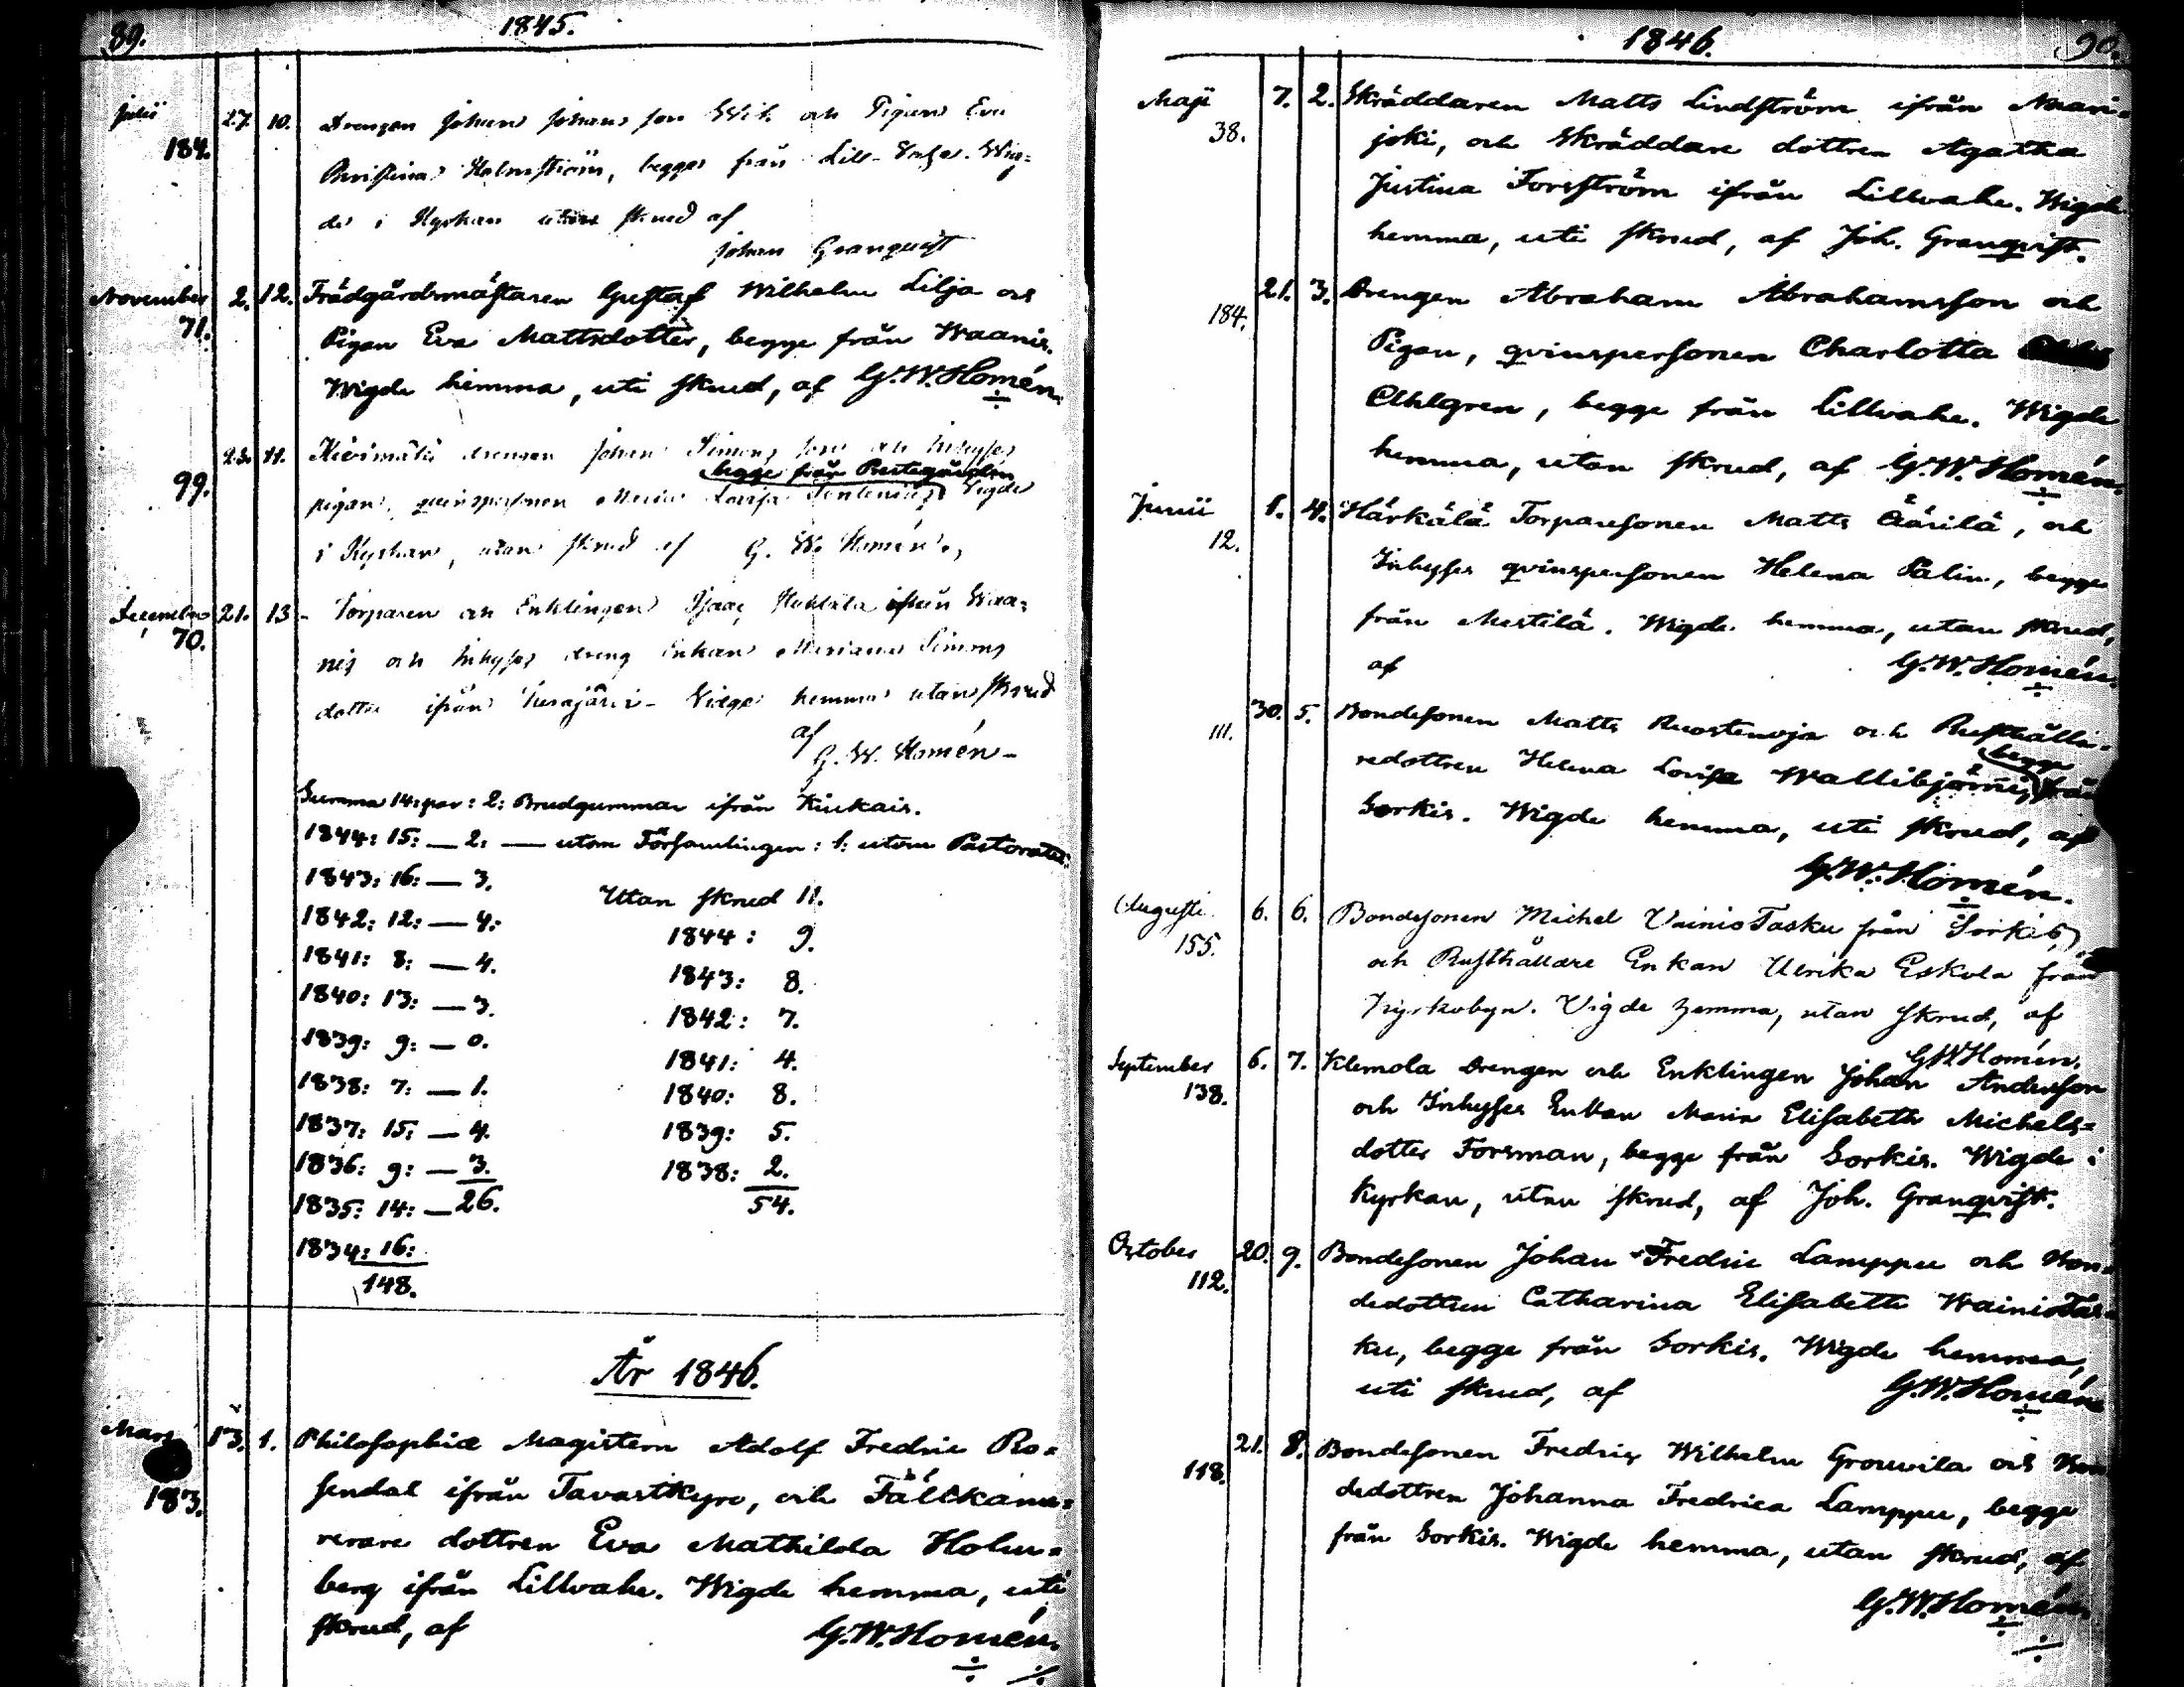 89.
1845.
Julii 27. 10. Drengen Johan Johans son Wik och Pigan Eva
184.
Christina Holmström, begge från Lill-Vahe. Wig=
de i Kyrkan utan skrud af
Johan Granqvist
November 2. 12. Trädgårdsmästaren Gustaf Wilhelm Lilja och
71.
Pigan Eva Mattsdotter, begge från Waanis.
Wigde hemma, uti skrud, af G.W.Homén.
23. 11. Kivimäki drengen Johan Simons son och Inhyses
begge från Prestegården
99.
pigan, qvinspersonen Maria Lovisa Vigde
i Kyrkan, utan skrud af G. W. Homén.
December 21. 13. Torparen och Enklingen Isaac Heikkilä ifrån Waa=
70.
nis och Inhyses dreng Enkan Mariana Simons
dotter ifrån Turajärvi. Vigde hemma utan skrud
af
G. W. Homén
Summa 14: par: 2: Brudgummar ifrån Kiukais.
1844: 15: — 2: — utom Församlingen: 1: utom Pastoratet:
1843: 16: — 3.
Utan skrud 11.
1842: 12: — 4:
1844: 9.
1841: 8: — 4.
1843: 8.
1840: 13: — 3.
1842: 7.
1839: 9: — 0.
1841: 4.
1838: 7: — 1.
1840: 8.
1837: 15: — 4.
1839: 5.
1836: 9: — 3.
1838: 2.
1835: 14: — 26.
54.
1834: 16:
148.
År 1846.
Mars 13. 1. Philosophiæ Magistern Adolf Fredric Ro=
sendal ifrån Tavastkyro, och Fältkame=
183.
rerare dottren Eva Mathilda Holm=
berg ifrån Lillvahe. Wigde hemma, uti
skrud, af G.W.Homén.
1846.
90.
Maji 7. 2. Skräddaren Matts Lindström ifrån Naari=
38.
joki, och Skräddare dottren Agatha
Justina Forsström ifrån Lillvahe. Wigde
hemma, uti skrud, af Joh. Granqvist.
21. 3. Drengen Abraham Abrahamsson och
184.
Pigan, qvinspersonen Charlotta
Ahlgren, begge från Lillvahe. Wigde
hemma, utan skrud, af G.W.Homén.
Junii 1. 4. Härkälä Torparesonen Matts Äärilä, och
12.
Inhyses qvinspersonen Helena Palin, begge
från Mestilä. Wigde hemma, utan skrud,
af G.W.Homén.
30. 5. Bondesonen Matts Ruostenoja och Rusthålla=
111.
begge
redottren Helena Lovisa Wallibjörni, från
Sorkis. Wigde hemma, uti skrud, af
G.W.Homén.
Augusti 6. 6. Bondesonen Michel VainioTasku från Sorkis,
155.
och Rusthållare Enkan Ulrika Eskola från
Kyrkobyn. Vigde hemma, utan skrud, af
GWHomén.
September 6. 7. Klemola Drengen och Enklingen Johan Andersson
138.
och Inhyses Enkan Maria Elisabeth Michels=
dotter Forsman, begge från Sorkis. Wigde i
Kyrkan, utan skrud, af Joh. Granqvist.
October 20. 9. Bondesonen Johan Fredric Lamppu och Bon=
112.
dedottren Catharina Elisabeth WainioTas=
ku, begge från Sorkis. Wigde hemma,
uti skrud, af G.W.Homén
21. 8. Bondesonen Fredric Wilhelm Grouvila och Bon
118.
dedottren Johanna Fredrica Lamppu, begge
från Sorkis. Wigde hemma, utan skrud, af
G.W.Homén.